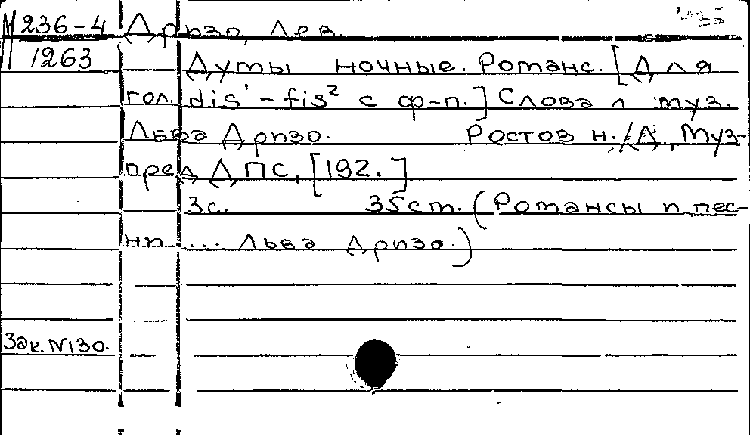 М 236-4 Дризо, Лев.
1263 Думы ночные. Романс. [Для
гол. dis¹-fis² с ф-п.] Слова и муз.
Льва Дризо. Ростов н./Д, Муз-
пред ДПС, [192. ]
3с. 35 cm. (Романсы и пес-
ни ... Льва Дризо.)
Зак. N130.